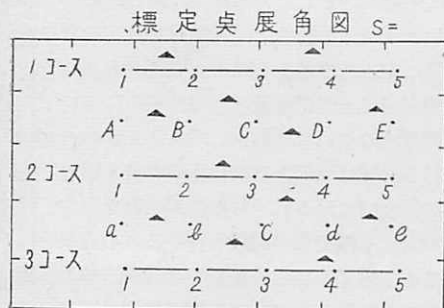 標定点展角図 S=
1コース
1 2 3 4 5
A B C D E
2コース
1 2 3 4 5
a b c d e
3コース
1 2 3 4 5